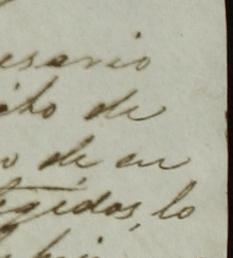 esario
ito de
o de en
egidos, lo